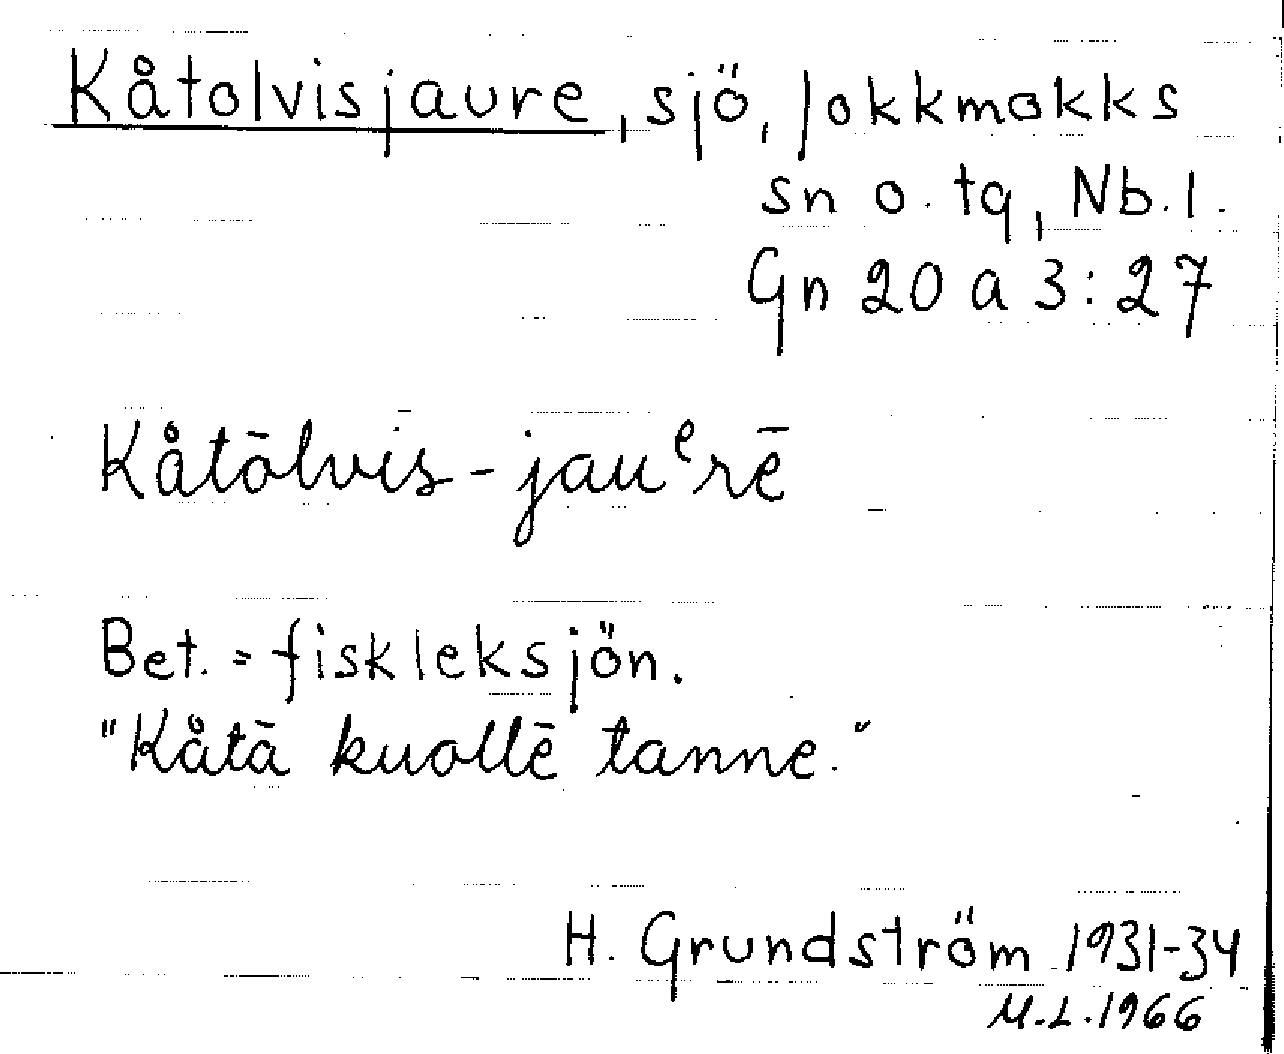 Kåtolvisjaure, sjö, Jokkmokks
sn o. tg, Nb.l.
Gn 20 a 3:27
Kåtōlvis-jauᵉrē
Bet. = fiskleksjön.
"Kåtā kuollē tanne."
H. Grundström 1931-34
M.L.1966